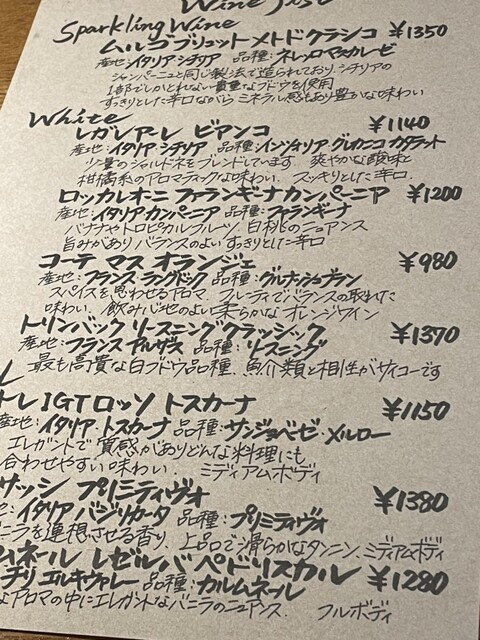 Wine List
Sparkling Wine
ムルゴ ブリュット メトド クラシコ ¥1350
産地:イタリア シチリア 品種:ネレッロ マスカレーゼ
シャンパーニュと同じ製法で造られており、シチリアの
1部でしかとれない貴重なブドウを使用
すっきりとした辛口ながら ミネラル感もあり豊かな味わい
White
レガレアーレ ビアンコ ¥1140
産地:イタリア シチリア 品種:インツォリア グレカニコ カタラット
少量のシャルドネをブレンドしています 爽やかな酸味と
柑橘系のアロマティックな味わい. スッキリとした辛口.
ロッカレオーニ ファランギーナ カンパーニア ¥1200
産地:イタリア カンパーニア 品種:ファランギーナ
バナナやトロピカルフルーツ、白桃のニュアンス
旨みがあり バランスのよい すっきりとした辛口
コーテ マス オランジェ ¥980
産地:フランス ラングドック 品種:グルナッシュブラン
スパイスを思わせるアロマ. フルーティでバランスの取れた
味わい. 飲み心地のよい柔らかな オレンジワイン
トリンバック リースニング クラッシック ¥1370
産地:フランス アルザス 品種:リースニング
最も高貴な白ブドウ品種. 魚介類と相性がサイコーです
トレ IGT ロッソ トスカーナ ¥1150
産地:イタリア トスカーナ 品種:サンジョベーゼ・メルロー
エレガントで 質感がありどんな料理にも
合わせやすい味わい. ミディアムボディ
サッシ プリミティヴォ ¥1380
:イタリア バジリカータ 品種:プリミティヴォ
ニラを連想させる香り. 上品で滑らかなタンニン、ミディアムボディ
ムネール レゼルバ ペドリスカル ¥1280
チリ エルキヴァレー 品種:カルムネール
なアロマの中にエレガントなバニラのニュアンス. フルボディ